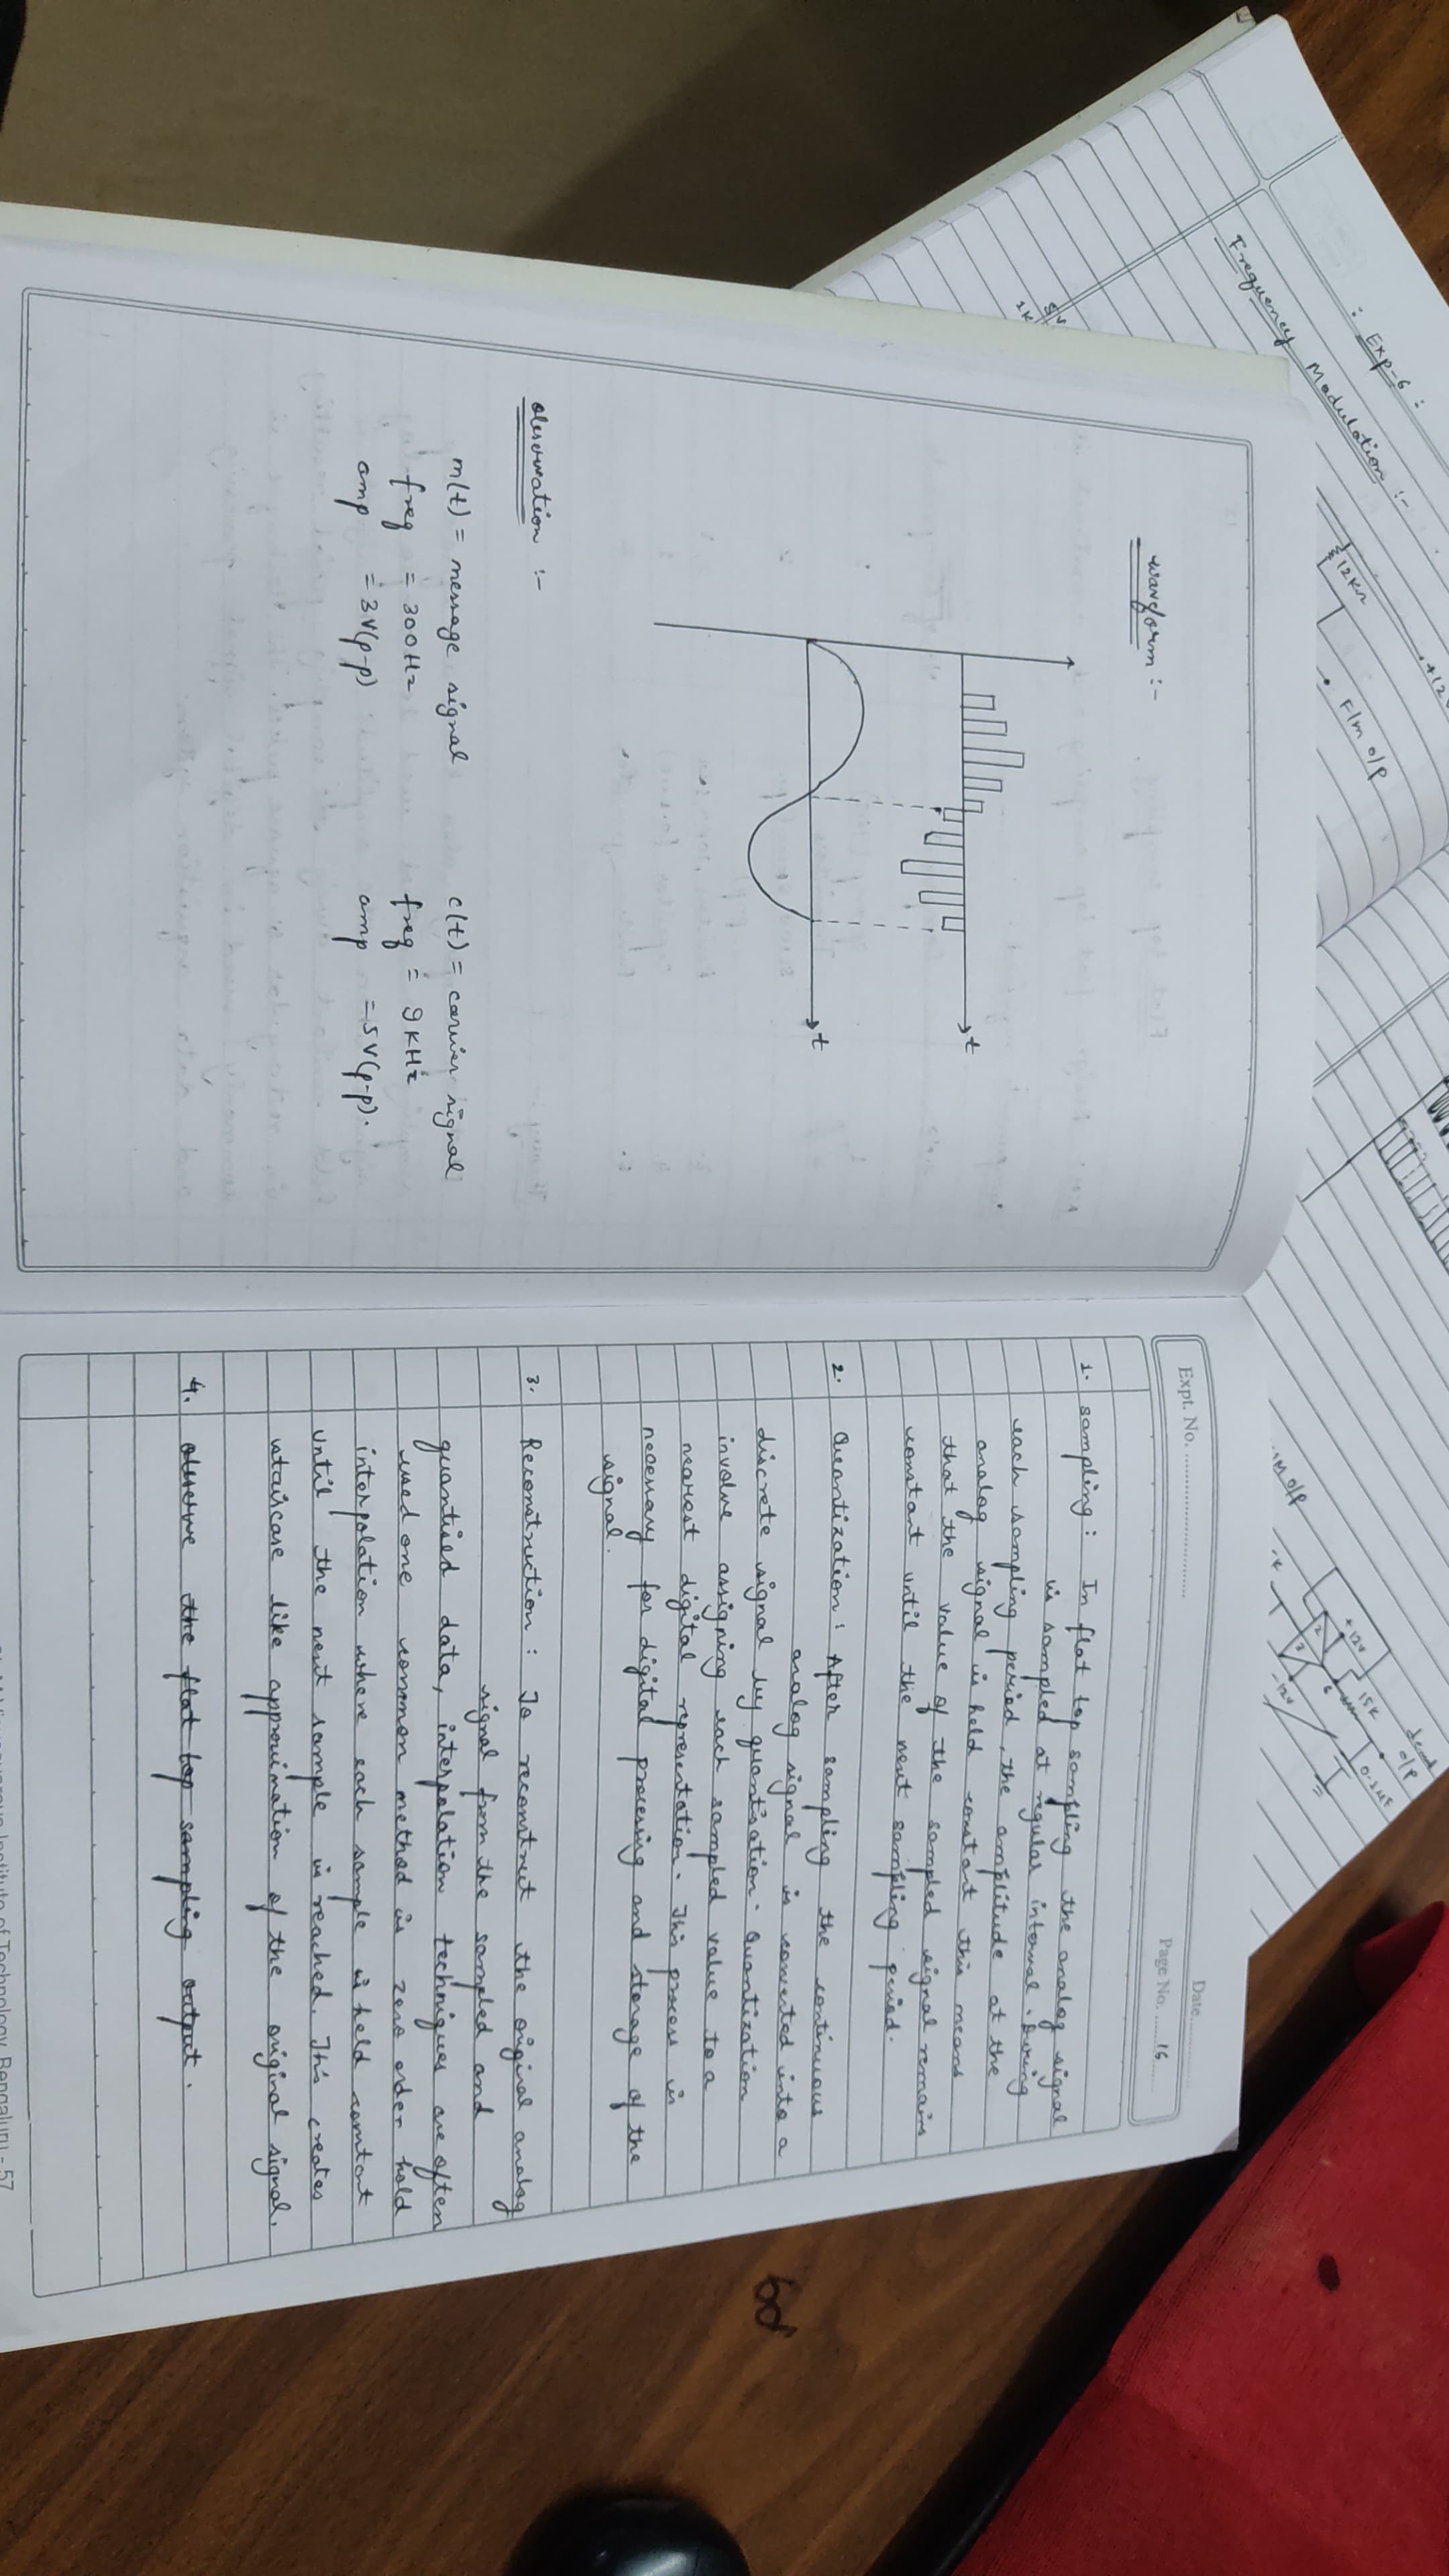 : Exp-6 :
Frequency Modulation :-
+12v
12KΩ
F/m O/P
+12v
15K
demod
O/P
0.1uF
2
3
6
-12v
O/P
1K
waveform :-
t
t
observation :-
m(t) = message signal
freq = 300Hz
amp = 3V(p-p)
c(t) = carrier signal
freq = 9KHz
amp = 5V(p-p).
Expt. No.
Date
Page No. 16
1. sampling : In flat top sampling the analog signal
is sampled at regular interval. During
each sampling period, the amplitude at the
analog signal is held constant this means
that the value of the sampled signal remains
constant until the next sampling period.
2. Quantization : After sampling the continuous
analog signal is converted into a
discrete signal by quantisation. Quantization
involve assigning each sampled value to a
nearest digital representation. This process is
necessary for digital processing and storage of the
signal.
3. Reconstruction : To reconstruct the original analog
signal from the sampled and
quantised data, interpolation techniques are often
used one common method is zero order hold
interpolation where each sample is held constant
until the next sample is reached. This creates
staircase like approximation of the original signal.
4. observe the flat top sampling output.
Institute of Technology, Bengaluru - 57